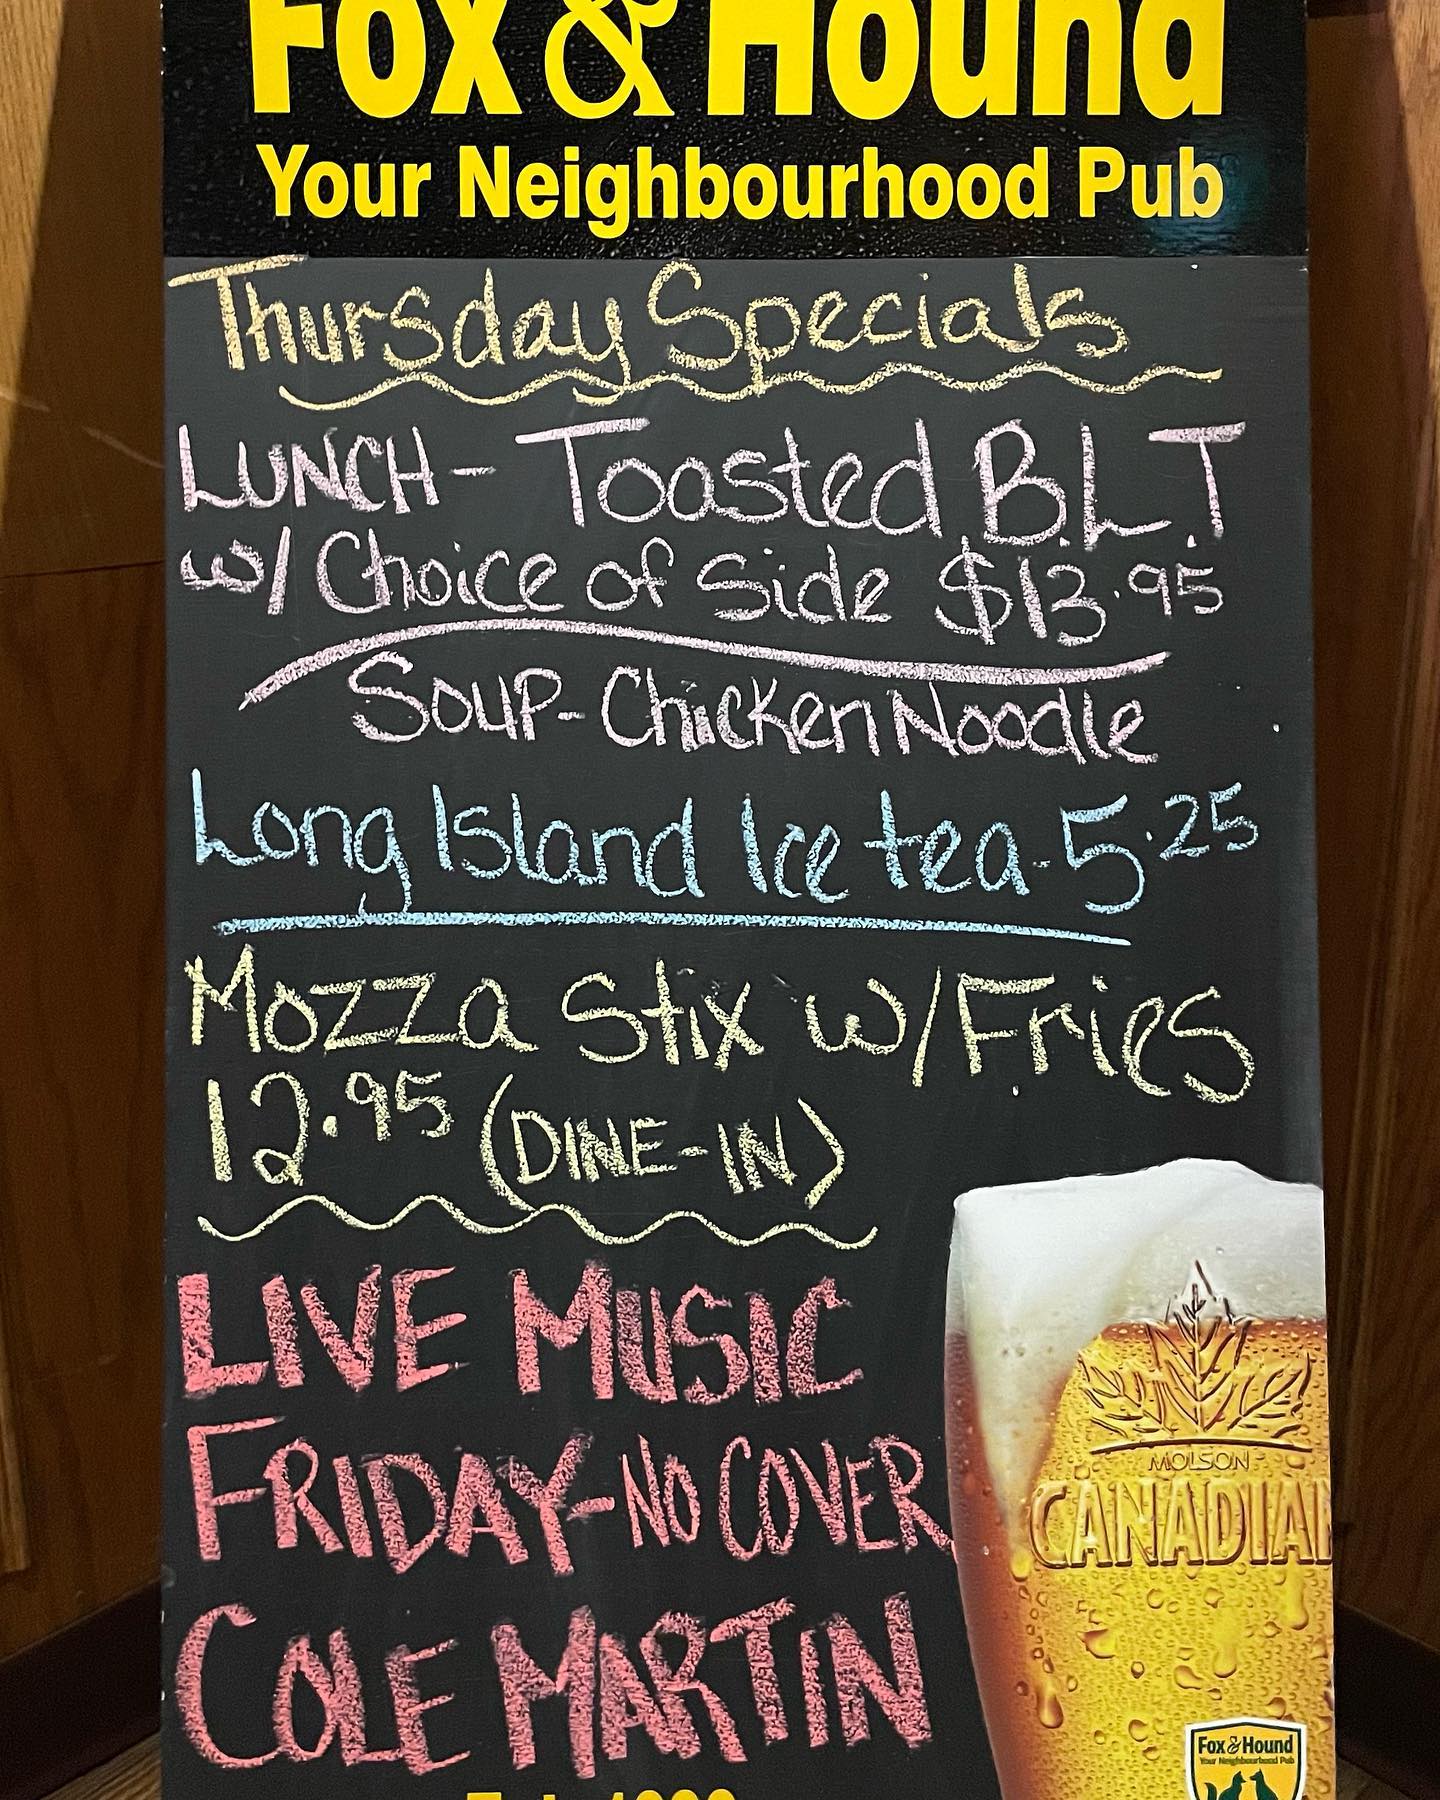 Fox & Hound
Your Neighbourhood Pub
Thursday Specials
LUNCH - Toasted B.L.T
w/ Choice of Side $13.95
Soup - Chicken Noodle
Long Island Ice tea - 5.25
Mozza Stix w/ Fries
12.95 (DINE-IN)
LIVE MUSIC
FRIDAY - NO COVER
COLE MARTIN
MOLSON
CANADIAN
Fox & Hound
Your Neighbourhood Pub